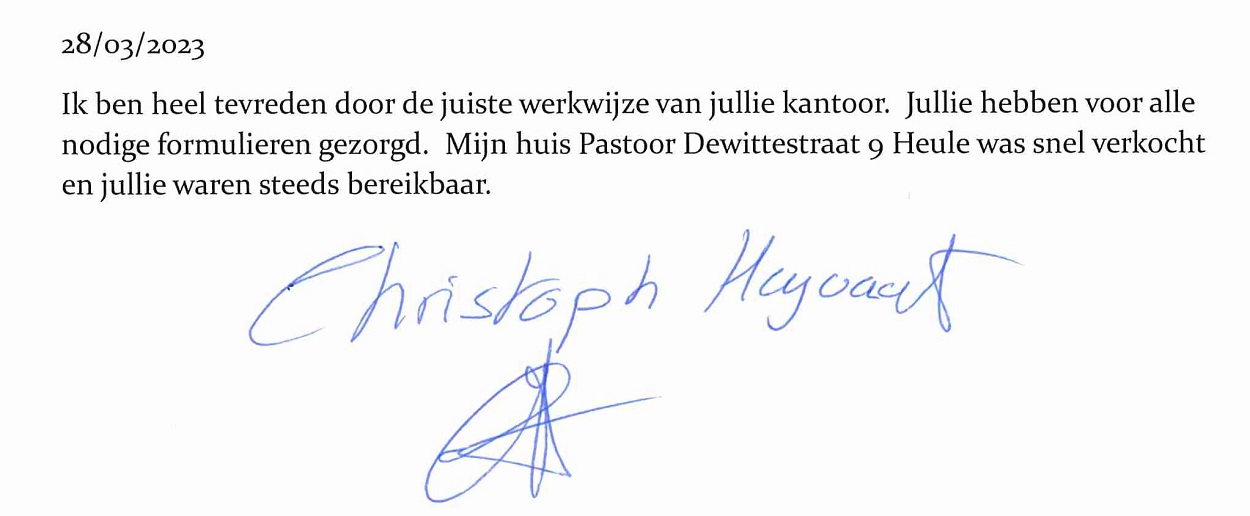 28/03/2023
Ik ben heel tevreden door de juiste werkwijze van jullie kantoor. Jullie hebben voor alle
nodige formulieren gezorgd. Mijn huis Pastoor Dewittestraat 9 Heule was snel verkocht
en jullie waren steeds bereikbaar.
Christoph